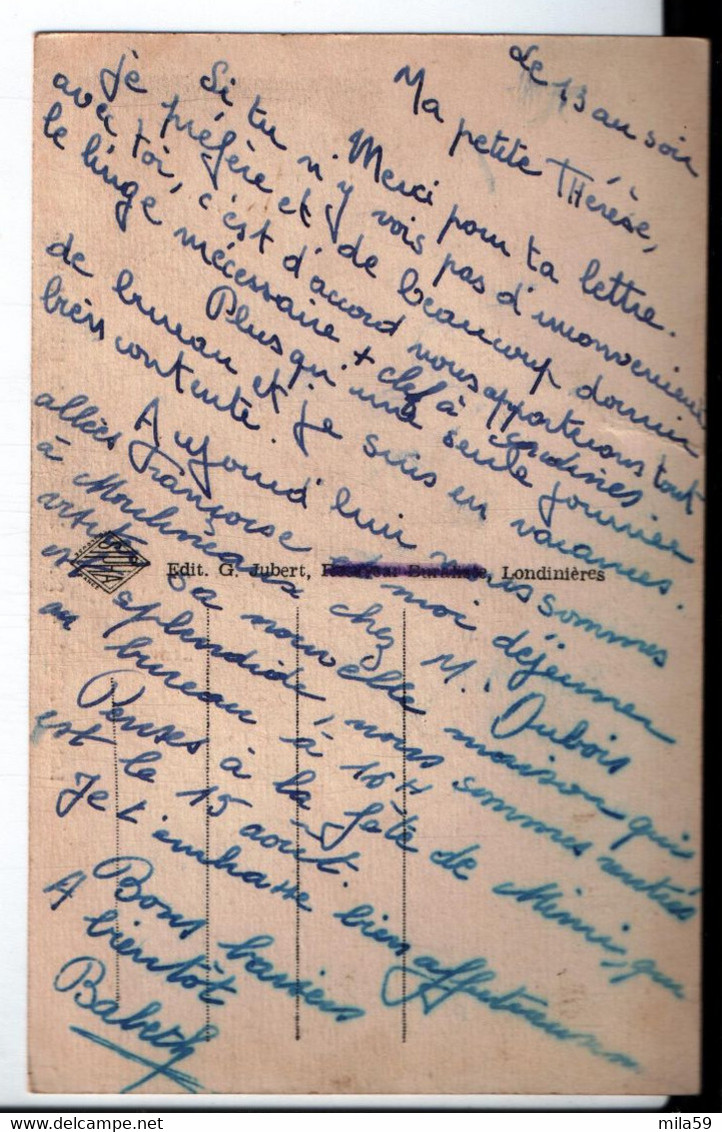 Le 13 au soir
Ma petite THérèse,
Merci pour ta lettre.
Si tu n'y vois pas d'inconvenient
je préfère et de beaucoup dormir
avec toi, c'est d'accord nous apporterons tout
le linge nécessaire + clef à
Plus qu'une seule journée
de bureau et je suis en vacances.
très contente.
Aujourd'hui nous sommes
allées Françoise et moi déjeuner
à Moulineaux chez M. Dubois
visité sa nouvelle maison qui
est splendide, nous sommes rentrées
au bureau à 16H
Penses à la fête de Mimi, qui
est le 15 août.
Je t'embrasse bien affectueusement
Bons baisers
A bientôt
Babeth
Edit. G. Jubert, Londinières
mila59